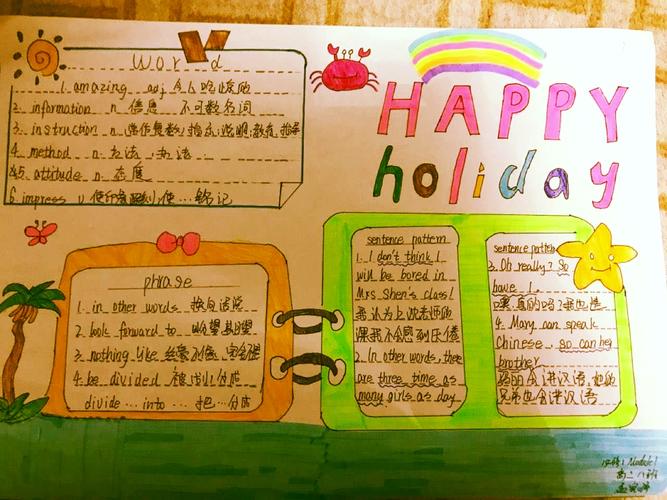 Word
1. amazing adj 令人吃惊的
2. information n. 信息 不可数名词
3. instruction n. 指示, 说明, 教育, 指导
4. method n. 方法, 办法
5. attitude n. 态度
6. impress v. 使印象深刻, 使…铭记
HAPPY
holiday
phrase
1. in other words 换句话说
2. look forward to 盼望, 期望
3. nothing like 丝毫不像
4. be divided 被
divide … into … 把…分成
sentence pattern
1. I don't think I
will be bored in
Mrs Shen's class!
我认为上沈老师的
课我不会感到厌倦
2. In other words, there
are three time as
many girls as day
sentence pattern
3. Oh really? So
have I.
噢真的吗?我也是
4. Many can speak
Chinese, so can her
brother
会讲汉语, 她的
兄弟也会讲汉语
Module 1
高 八班